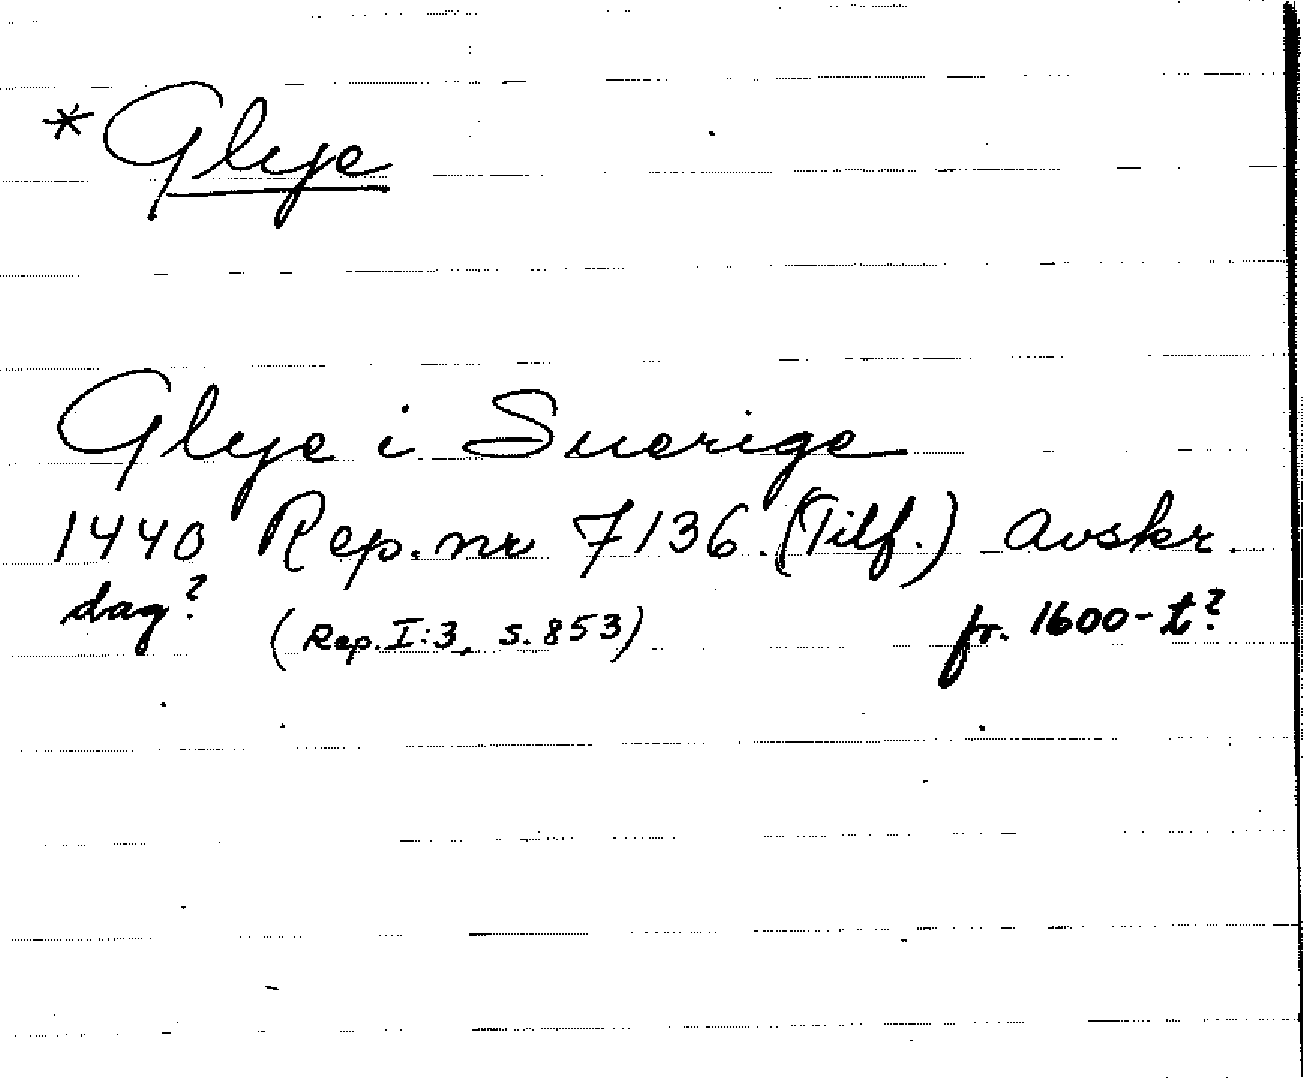 *Glye
Glye i Suerige
1440 Rep. nr 7136. (Tilf.) Avskr.
dag? (Rep. I:3, s. 853) fr. 1600-t?